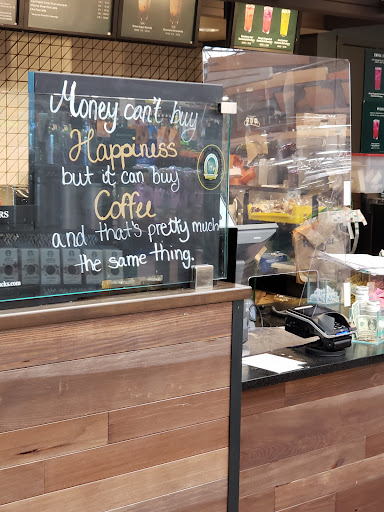 Money can't buy
Happiness
but it can buy
Coffee
and that's pretty much
the same thing.
RS
cks.com